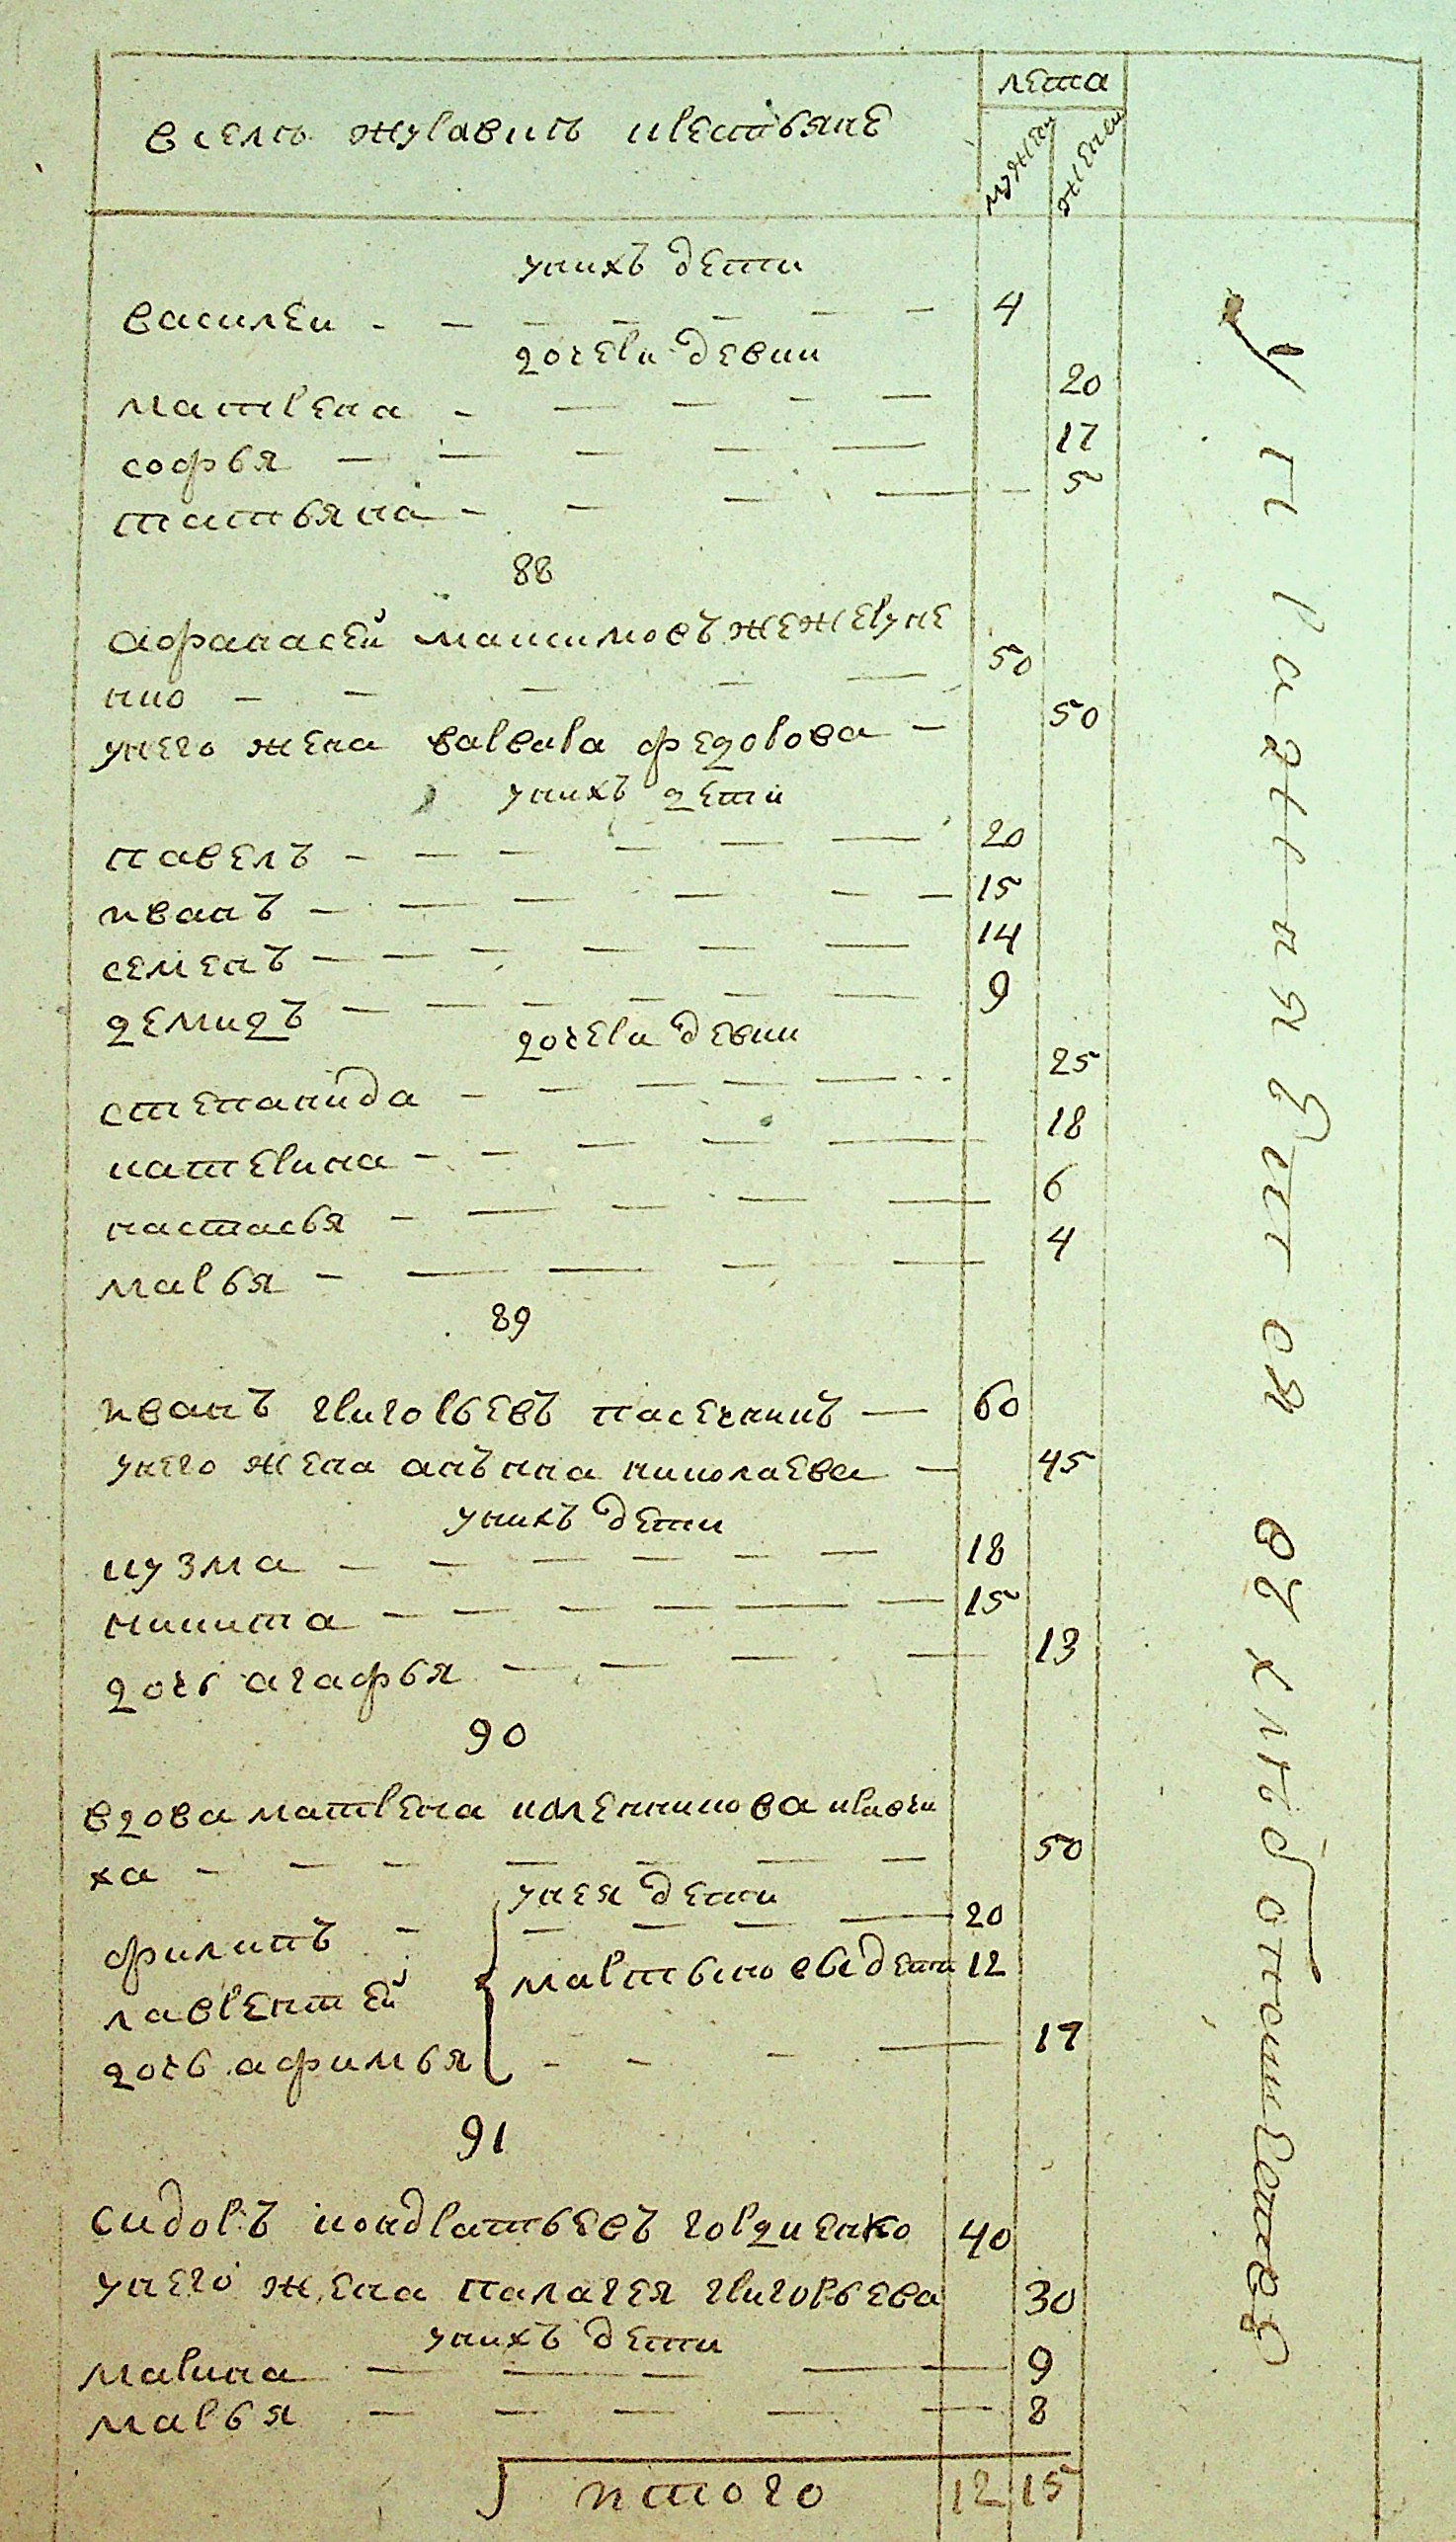 лета
в селѣ журавкѣ крестьяне
мужеск
женск
у нихъ дети
василеи 4
дочери девки
матрена 20
софья 17
татьяна 5
88
афанасей максимовъ жежеруне
нко 50
у него жена варвара федорова 50
у нихъ дети
павелъ 20
иванъ 15
семенъ 14
демидъ 9
дочери девки
степанида 25
катерина 18
настасья 6
марья 4
89
иванъ григорьевъ пасечникъ 60
у него жена анъна николаева 45
у нихъ дети
кузма 18
никита 15
дочь агафья 13
90
вдова матрена клеменикова кравчи
ха 50
у нея дети
филипъ 20
лаврентей мартыновы дети 12
дочь афимья 17
91
сидоръ кондратьевъ гордиенко 40
у него жена палагея григорьева 30
у нихъ дети
марина 9
марья 8
итого 12 15
Упражняется